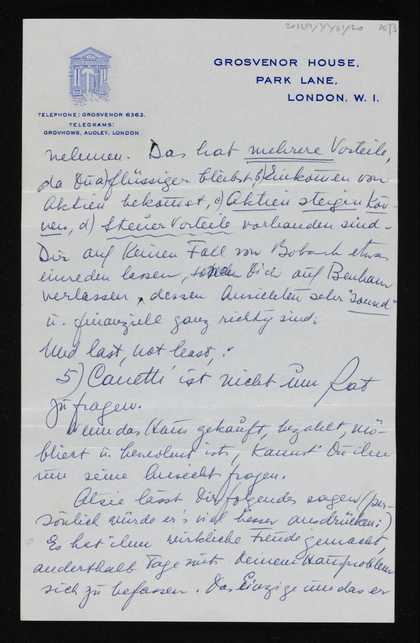 GROSVENOR HOUSE,
PARK LANE,
LONDON. W. 1.
TELEPHONE: GROSVENOR 6363.
TELEGRAMS:
GROVHOWS, AUDLEY, LONDON
nehmen. Das hat mehrere Vorteile,
da Du a) flüssiger bleibst b) Einkommen von
Aktien bekommst, c) Aktien steigen kön-
nen, d) Steuer Vorteile vorhanden sind.
Dir auf keinen Fall von etwas
einreden lassen, Dich auf Benham
verlassen, dessen Ansichten sehr "sound"
u. finanziell ganz richtig sind.
Und last, not least,:
5) Canetti ist nicht um Rat
zu fragen.
Wenn das Haus gekauft, bezahlt, mö-
bliert u. bewohnt ist, kannst Du ihn
um seine Ansicht fragen.
Also lässt Dir folgendes sagen (per-
sönlich würde er's viel besser ausdrücken:)
Es hat ihm wirkliche Freude gemacht,
anderthalb Tage mit Deinem Hausproblem
sich zu befassen. Das Einzige um das er